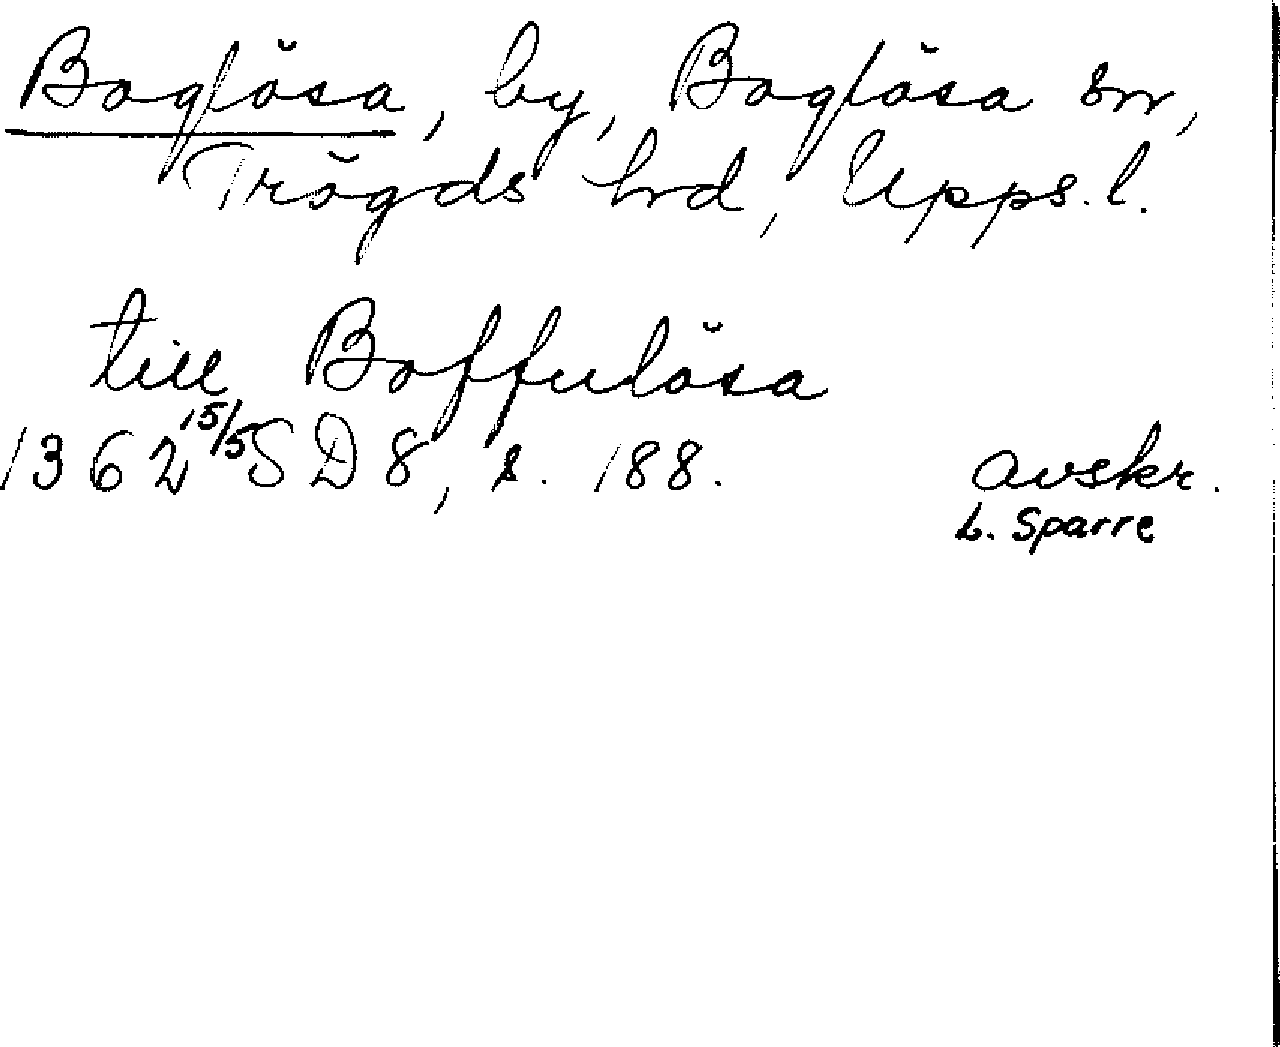 Boglösa, by, Boglösa sn,
Trögds hrd, Upps. l.
till Boffulösa
1362 15/5 SD 8, s. 188. avskr.
L. Sparre